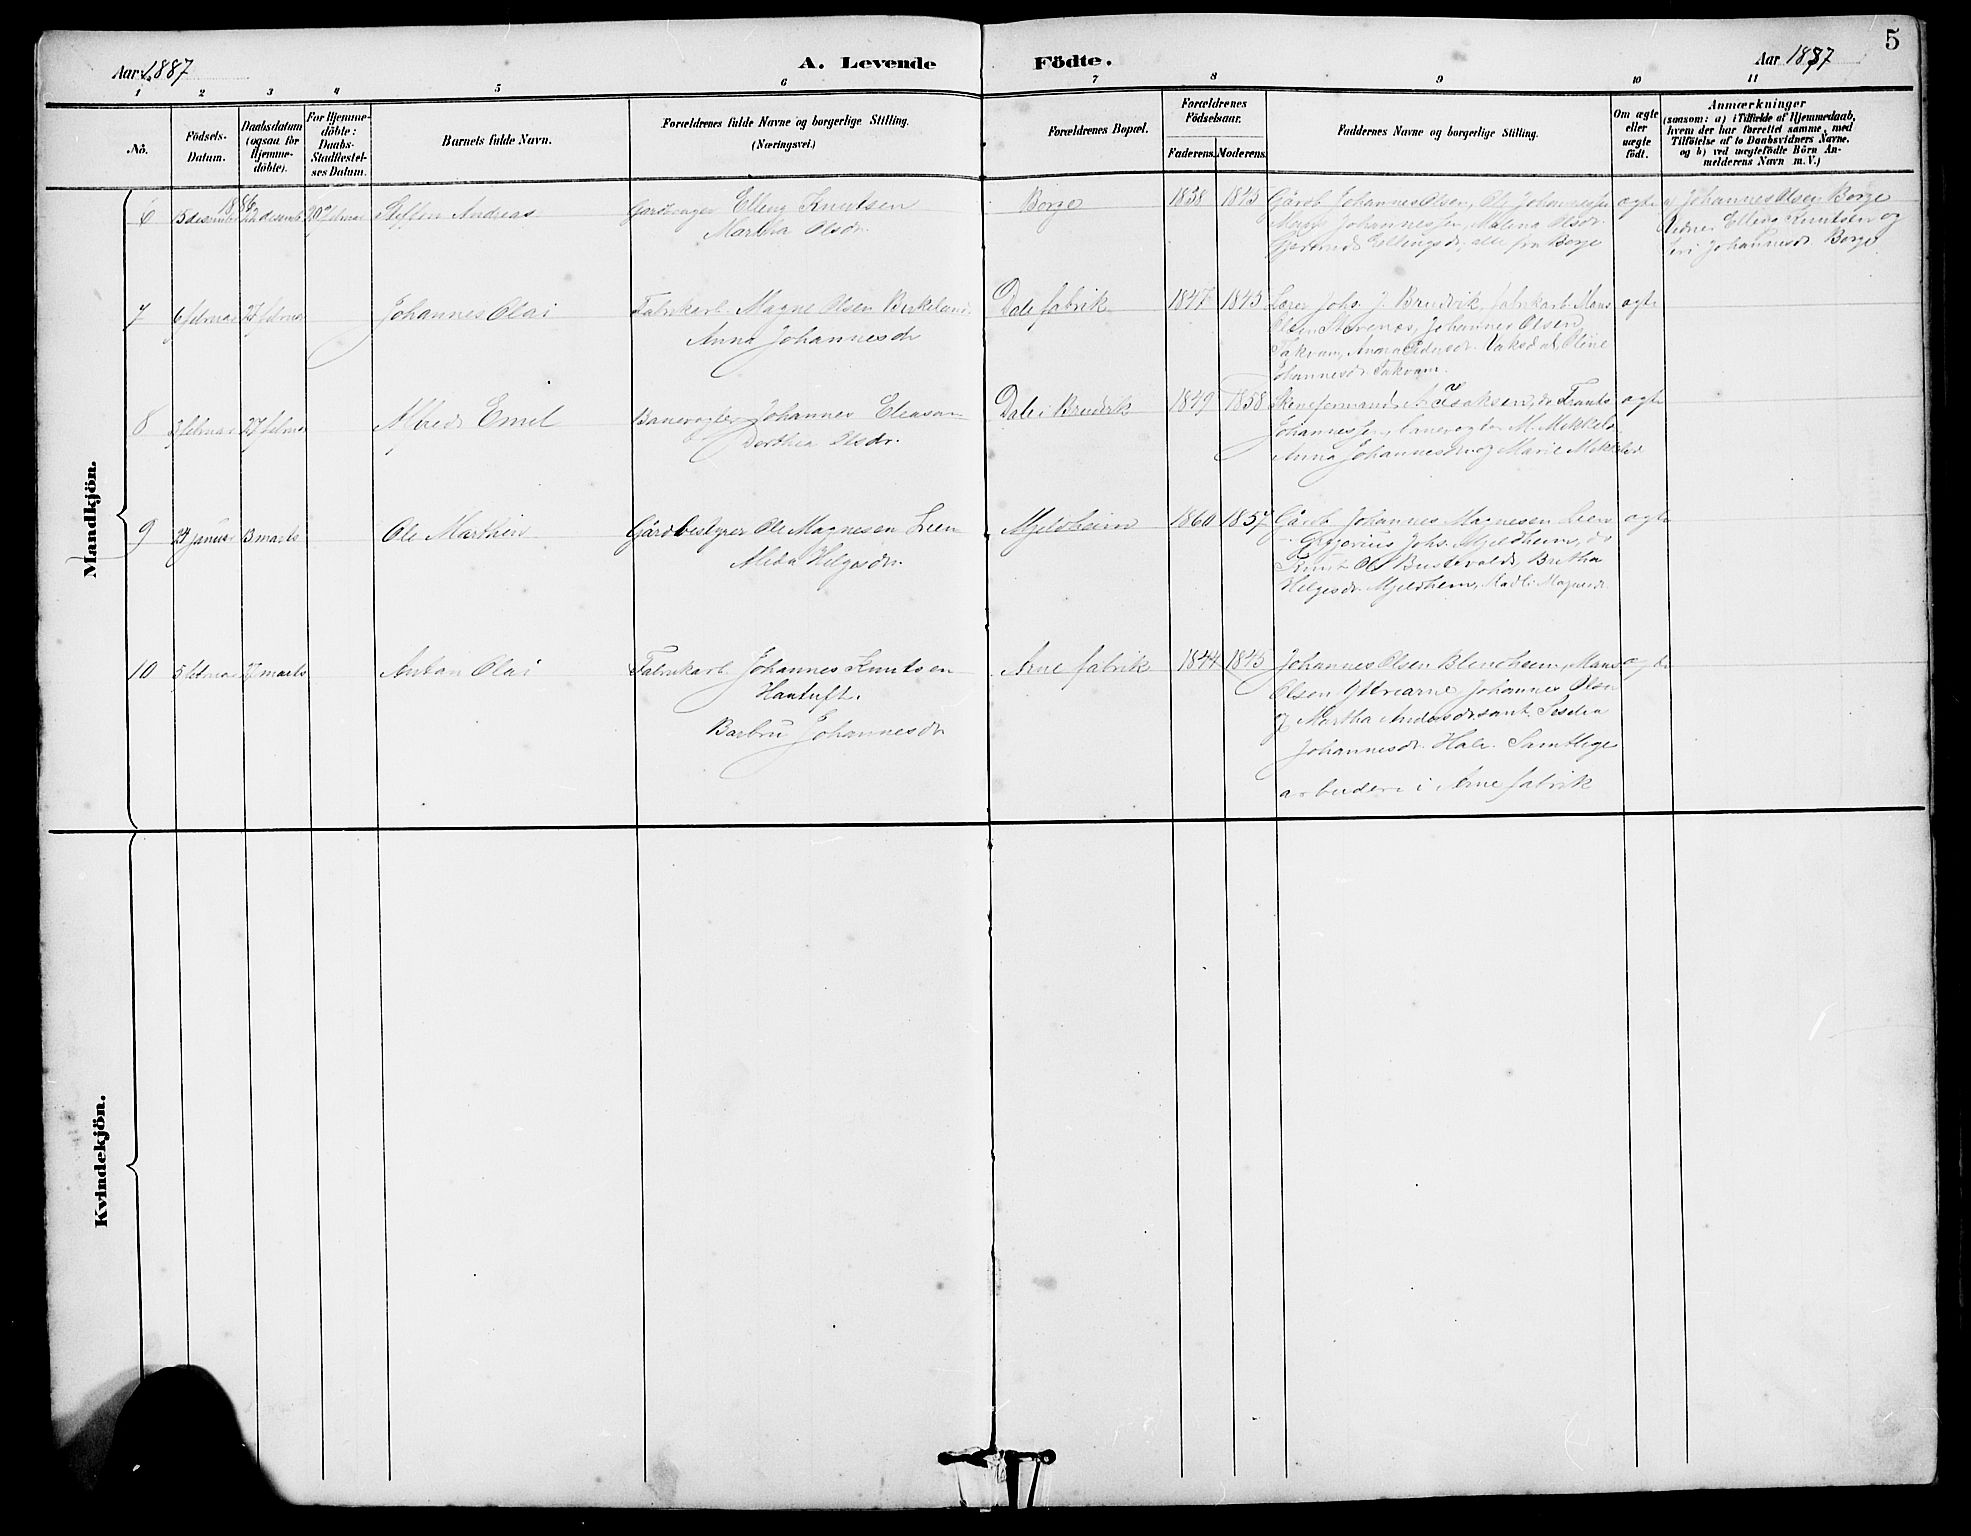 5
Aar 1887
A. Levende Födte.
Aar 1887
1 2 3 4 5 6 7 8 9 10 11
No.
Födsels-Datum.
Daabsdatum (ogsaa for Hjemme-döbte).
For Hjemme-döbte: Daabs-Stadfæstel-ses Datum.
Barnets fulde Navn.
Forældrenes fulde Navne og borgerlige Stilling.
(Næringsvei.)
Forældrenes Bopæl.
Forældrenes Födselsaar.
Faderens. Moderens.
Faddernes Navne og borgerlige Stilling.
Om ægte eller uægte födt.
Anmærkninger
(saasom: a) i Tilfælde af Hjemmedaab,
hvem der har forrettet samme, med
Tilföielse af to Daabsvidners Navne.
og b) ved uægtefödte Börn An-
melderens Navn m. V.)
Mandkjön.
1886
6 5 desember 12 desemb 20 februar Steffen Andreas
Elling Knutsen
Martha Olsdr.
Borge
1838 1845
Gårdb. Johannes Olsen, Ole Johannessen
Johannessen, Malena Olsdr.
Ellingsdr, alle fra Borge
ægte
af Johannes Olsen Borge
Elling Knutsen og
Johannesdr. Borge
7 6 februar 27 februar Johannes Olai
Fabrikarb. Magne Olsen Birkeland
Anna Johannesdr
Dale fabrik
1847 1845
Lærer Johs. J. Brudvik, fabrikarb. Mons
Olsen Stavenæs, Johannes Olsen
Takvam, Anna Vaksdal, Oline
Johannesdr. Takvam.
ægte
8 februar 27 februar Alfred Emil
Banevogter Johannes Eleasen
Dorthea Olsdr.
Dale i Brudvik
1849 1858
Isaksen, do Frants
Johannessen, banevogter M. Mikkels.
Anna Johannesdr og Marie Mikkelsdr
ægte
9 29 januar 13 marts Ole Marthin
Gårdbestyrer Ole Magnesen Lien
Alida Helgesdr.
Mjeldheim
1860 1857
Gårdb. Johannes Magnesen Lien
Gregorius Johs. Mjeldheim, do
Knut Ols Brethe
Helgesdr. Mjeldheim, Magnesdr
ægte
10 5 februar 27 marts Anton Olai
Fabrikarb. Johannes Knutsen
Hantuft.
Barbru Johannesdr
Arne fabrik
1844 1845
Johannes Olsen Blindheim, Mons
Olsen Yttrearne, Johannes Olsen
og Martha Andersdr. samt
Johannesdr. Hale. Samtlige
arbeidere i Arne fabrik
ægte
Kvindekjön.